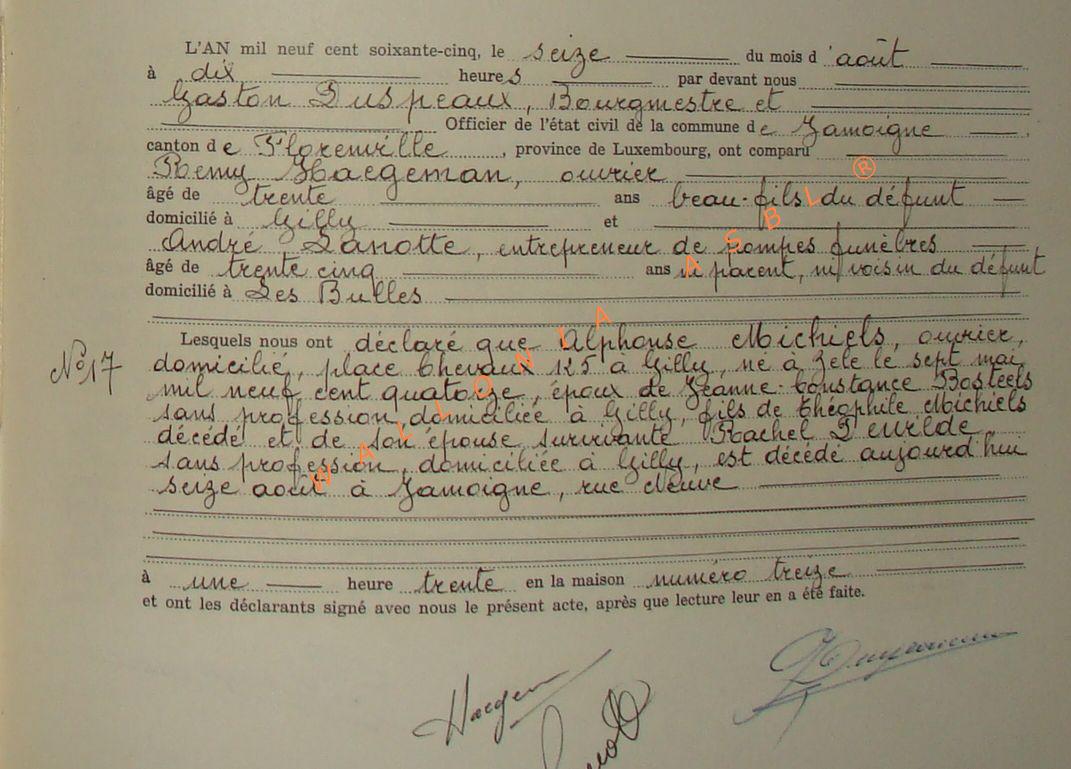 L'AN mil neuf cent soixante-cinq, le seize du mois d'août
à dix heures par devant nous
Gaston Duspeaux, Bourgmestre et
Officier de l'état civil de la commune de Jamoigne
canton de Florenville, province de Luxembourg, ont comparu
Remy Haegeman, ouvrier
âgé de trente ans beau-fils du défunt
domicilié à Gilly et
André Lanotte, entrepreneur de pompes funèbres
âgé de trente cinq ans ni parent, ni voisin du défunt
domicilié à Les Bulles
Lesquels nous ont déclaré que Alphonse Michiels, ouvrier,
No 17
domicilié, place Chevaux 125 à Gilly, né à Zele le sept mai
mil neuf cent quatorze, époux de Jeanne-Constance Bosteels
sans profession domiciliée à Gilly, fils de Théophile Michiels
décédé et de son épouse survivante Rachel
sans profession, domiciliée à Gilly, est décédé aujourd'hui
seize août à Jamoigne, rue Neuve
à une heure trente en la maison numéro treize
et ont les déclarants signé avec nous le présent acte, après que lecture leur en a été faite.
Haegeman
WALLONIA ASBL ®